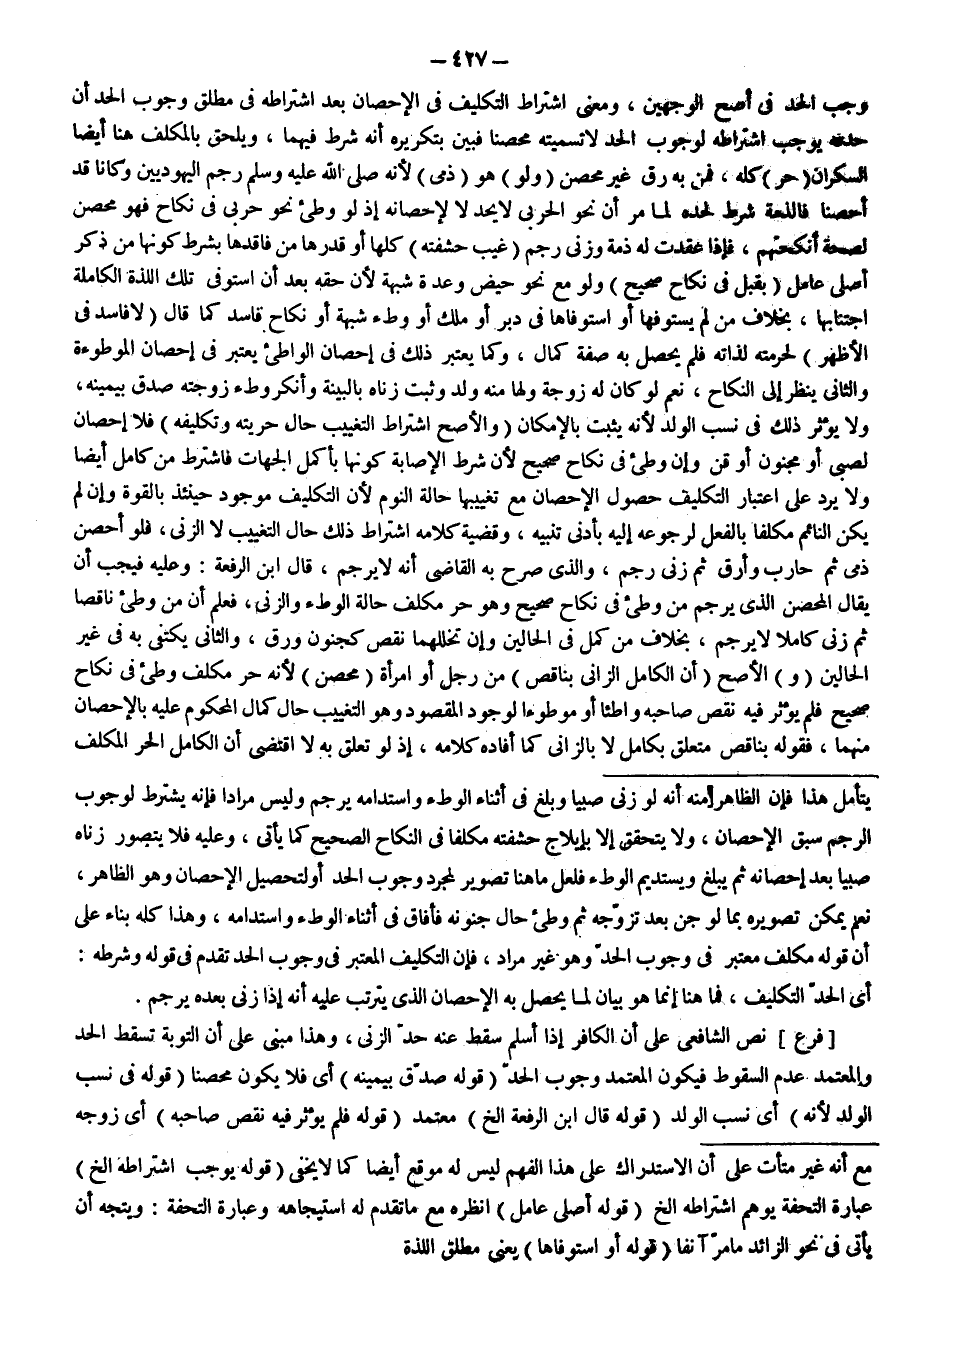 — ٤٢٧ —
وجب الحد فى أصح الوجهين ، ومعنى اشتراط التكليف فى الإحصان بعد اشتراطه فى مطلق وجوب الحد أن
حذفه يوجب اشتراطه لوجوب الحد لاتسميته محصنا فبين بتكريره أنه شرط فيهما ، ويلحق بالمكلف هنا أيضا
السكران (حر) كله ، فمن به رق غير محصن (ولو) هو (ذمى) لأنه صلى الله عليه وسلم رجم اليهوديين وكانا قد
أحصنا فالذمة شرط لحده لما مر أن نحو الحربى لايحد لا لإحصانه إذ لو وطئ نحو حربى فى نكاح فهو محصن
لصحة أنكحتهم ، فإذا عقدت له ذمة وزنى رجم (غيب حشفته) كلها أو قدرها من فاقدها بشرط كونها من ذكر
أصلى عامل (بقبل فى نكاح صحيح) ولو مع نحو حيض وعدة شبهة لأن حقه بعد أن استوفى تلك اللذة الكاملة
اجتنابها ، بخلاف من لم يستوفها أو استوفاها فى دبر أو ملك أو وطء شبهة أو نكاح فاسد كما قال (لافاسد فى
الأظهر) لحرمته لذاته فلم يحصل به صفة كمال ، وكما يعتبر ذلك فى إحصان الواطئ يعتبر فى إحصان الموطوءة
والثانى ينظر إلى النكاح ، نعم لو كان له زوجة ولها منه ولد وثبت زناه بالبينة وأنكر وطء زوجته صدق بيمينه ،
ولا يؤثر ذلك فى نسب الولد لأنه يثبت بالإمكان (والأصح اشتراط التغييب حال حريته وتكليفه) فلا إحصان
لصبى أو مجنون أو قن وإن وطئ فى نكاح صحيح لأن شرط الإصابة كونها بأكمل الجهات فاشترط من كامل أيضا
ولا يرد على اعتبار التكليف حصول الإحصان مع تغييبها حالة النوم لأن التكليف موجود حينئذ بالقوة وإن لم
يكن النائم مكلفا بالفعل لرجوعه إليه بأدنى تنبيه ، وقضية كلامه اشتراط ذلك حال التغييب لا الزنى ، فلو أحصن
ذمى ثم حارب وأرق ثم زنى رجم ، والذى صرح به القاضى أنه لايرجم ، قال ابن الرفعة : وعليه فيجب أن
يقال المحصن الذى يرجم من وطئ فى نكاح صحيح وهو حر مكلف حالة الوطء والزنى ، فعلم أن من وطئ ناقصا
ثم زنى كاملا لايرجم ، بخلاف من كمل فى الحالين وإن تخللهما نقص كجنون ورق ، والثانى يكتفى به فى غير
الحالين (و) الأصح (أن الكامل الزانى بناقص) من رجل أو امرأة (محصن) لأنه حر مكلف وطئ فى نكاح
صحيح فلم يؤثر فيه نقص صاحبه واطئا أو موطوءا لوجود المقصود وهو التغييب حال كمال المحكوم عليه بالإحصان
منهما ، فقوله بناقص متعلق بكامل لا بالزانى كما أفاده كلامه ، إذ لو تعلق به لا اقتضى أن الكامل الحر المكلف
يتأمل هذا فإن الظاهر منه أنه لو زنى صبيا وبلغ فى أثناء الوطء واستدامه يرجم وليس مرادا فإنه يشترط لوجوب
الرجم سبق الإحصان ، ولا يتحقق إلا بإيلاج حشفته مكلفا فى النكاح الصحيح كما يأتى ، وعليه فلا يتصور زناه
صبيا بعد إحصانه ثم يبلغ ويستديم الوطء فلعل ماهنا تصوير لمجرد وجوب الحد أولتحصيل الإحصان وهو الظاهر ،
نعم يمكن تصويره بما لو جن بعد تزوّجه ثم وطئ حال جنونه فأفاق فى أثناء الوطء واستدامه ، وهذا كله بناء على
أن قوله مكلف معتبر فى وجوب الحدّ وهو غير مراد ، فإن التكليف المعتبر فى وجوب الحد تقدم فى قوله وشرطه :
أى الحدّ التكليف ، فما هنا إنما هو بيان لما يحصل به الإحصان الذى يترتب عليه أنه إذا زنى بعده يرجم .
[فرع] نص الشافعى على أن الكافر إذا أسلم سقط عنه حدّ الزنى ، وهذا مبنى على أن التوبة تسقط الحد
والمعتمد عدم السقوط فيكون المعتمد وجوب الحدّ (قوله صدّق بيمينه) أى فلا يكون محصنا (قوله فى نسب
الولد لأنه) أى نسب الولد (قوله قال ابن الرفعة الخ) معتمد (قوله فلم يؤثر فيه نقص صاحبه) أى زوجه
مع أنه غير متأت على أن الاستدراك على هذا الفهم ليس له موقع أيضا كما لايخفى (قوله يوجب اشتراطه الخ)
عبارة التحفة يوهم اشتراطه الخ (قوله أصلى عامل) انظره مع ماتقدم له استيجاهه وعبارة التحفة : ويتجه أن
يأتى فى نحو الزائد مامرّ آنفا (قوله أو استوفاها) يعنى مطلق اللذة